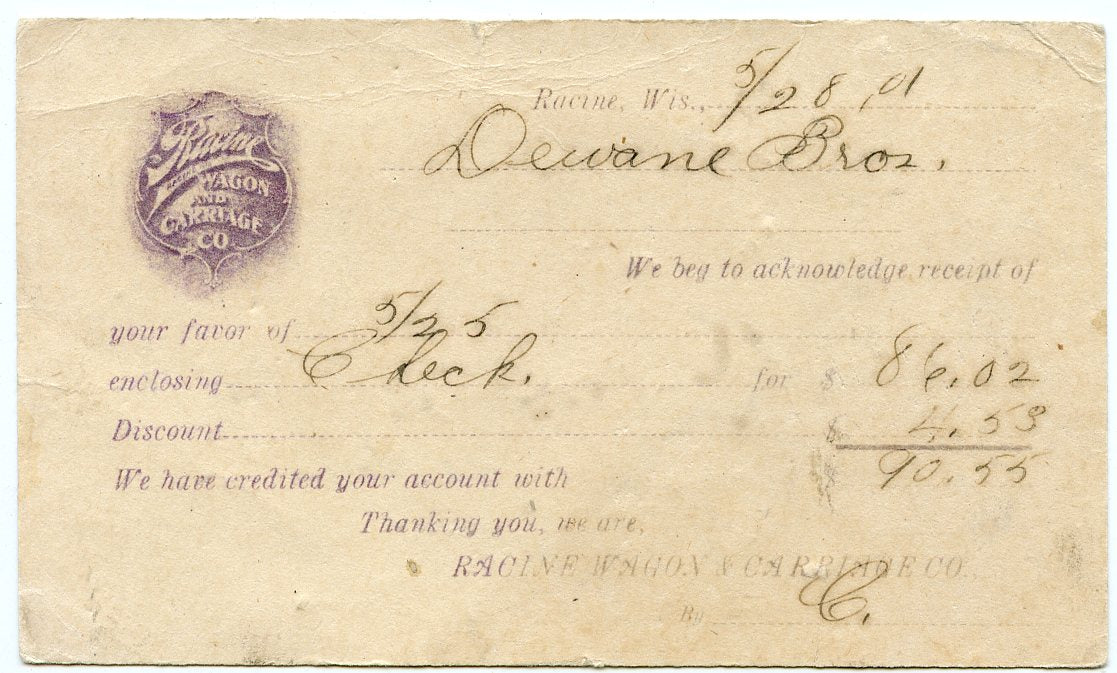 Racine
WAGON
AND
CARRIAGE
CO
Racine, Wis., 5/28,01
Dewane Bros.
We beg to acknowledge receipt of
your favor of 5/25
enclosing Check. for $ 86.02
Discount $ 4.53
We have credited your account with 90.55
Thanking you, we are,
RACINE WAGON & CARRIAGE CO.,
By C.